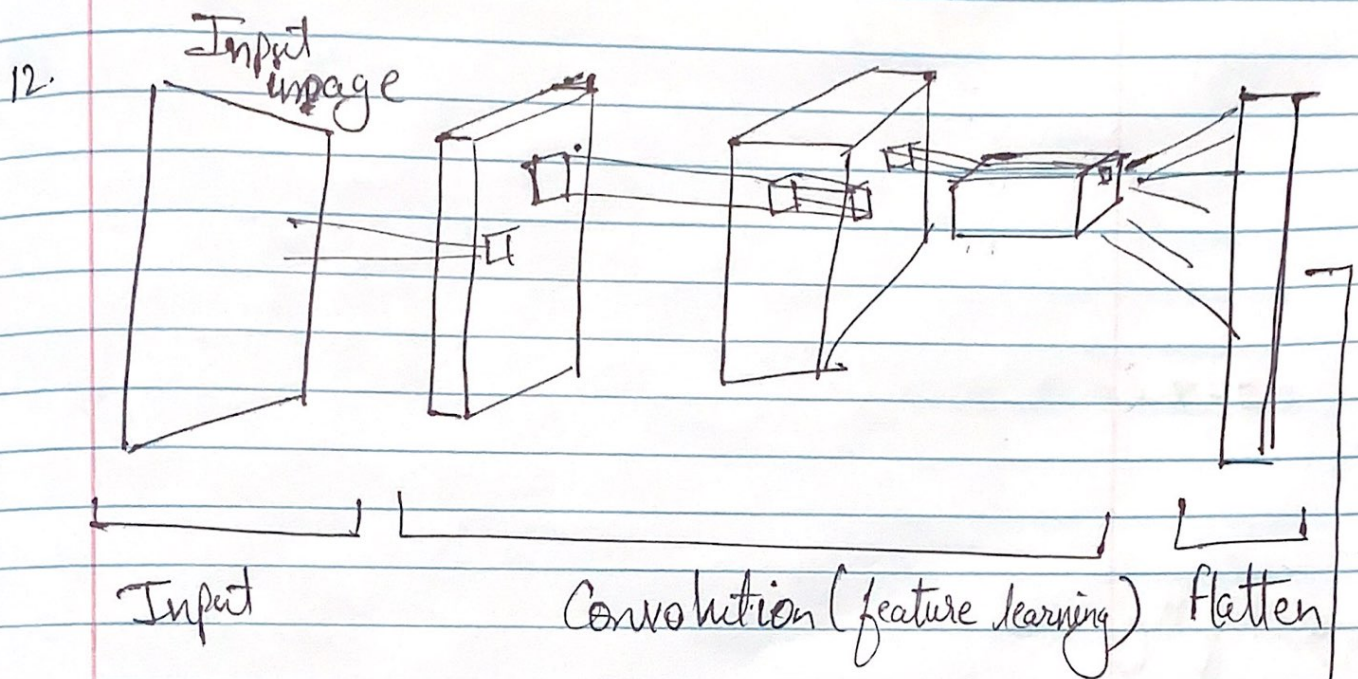 12.
Input
image
Input
Convolution (feature learning)
flatten